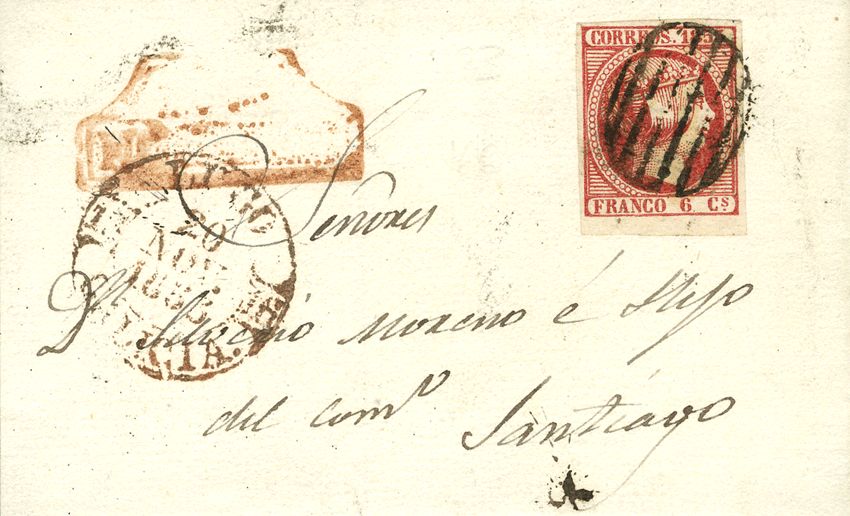 CORREOS. 185
FRANCO 6 Cs
20
NOV
Señores
Dn Silverio Moreno é Hijo
del comº
Santiago